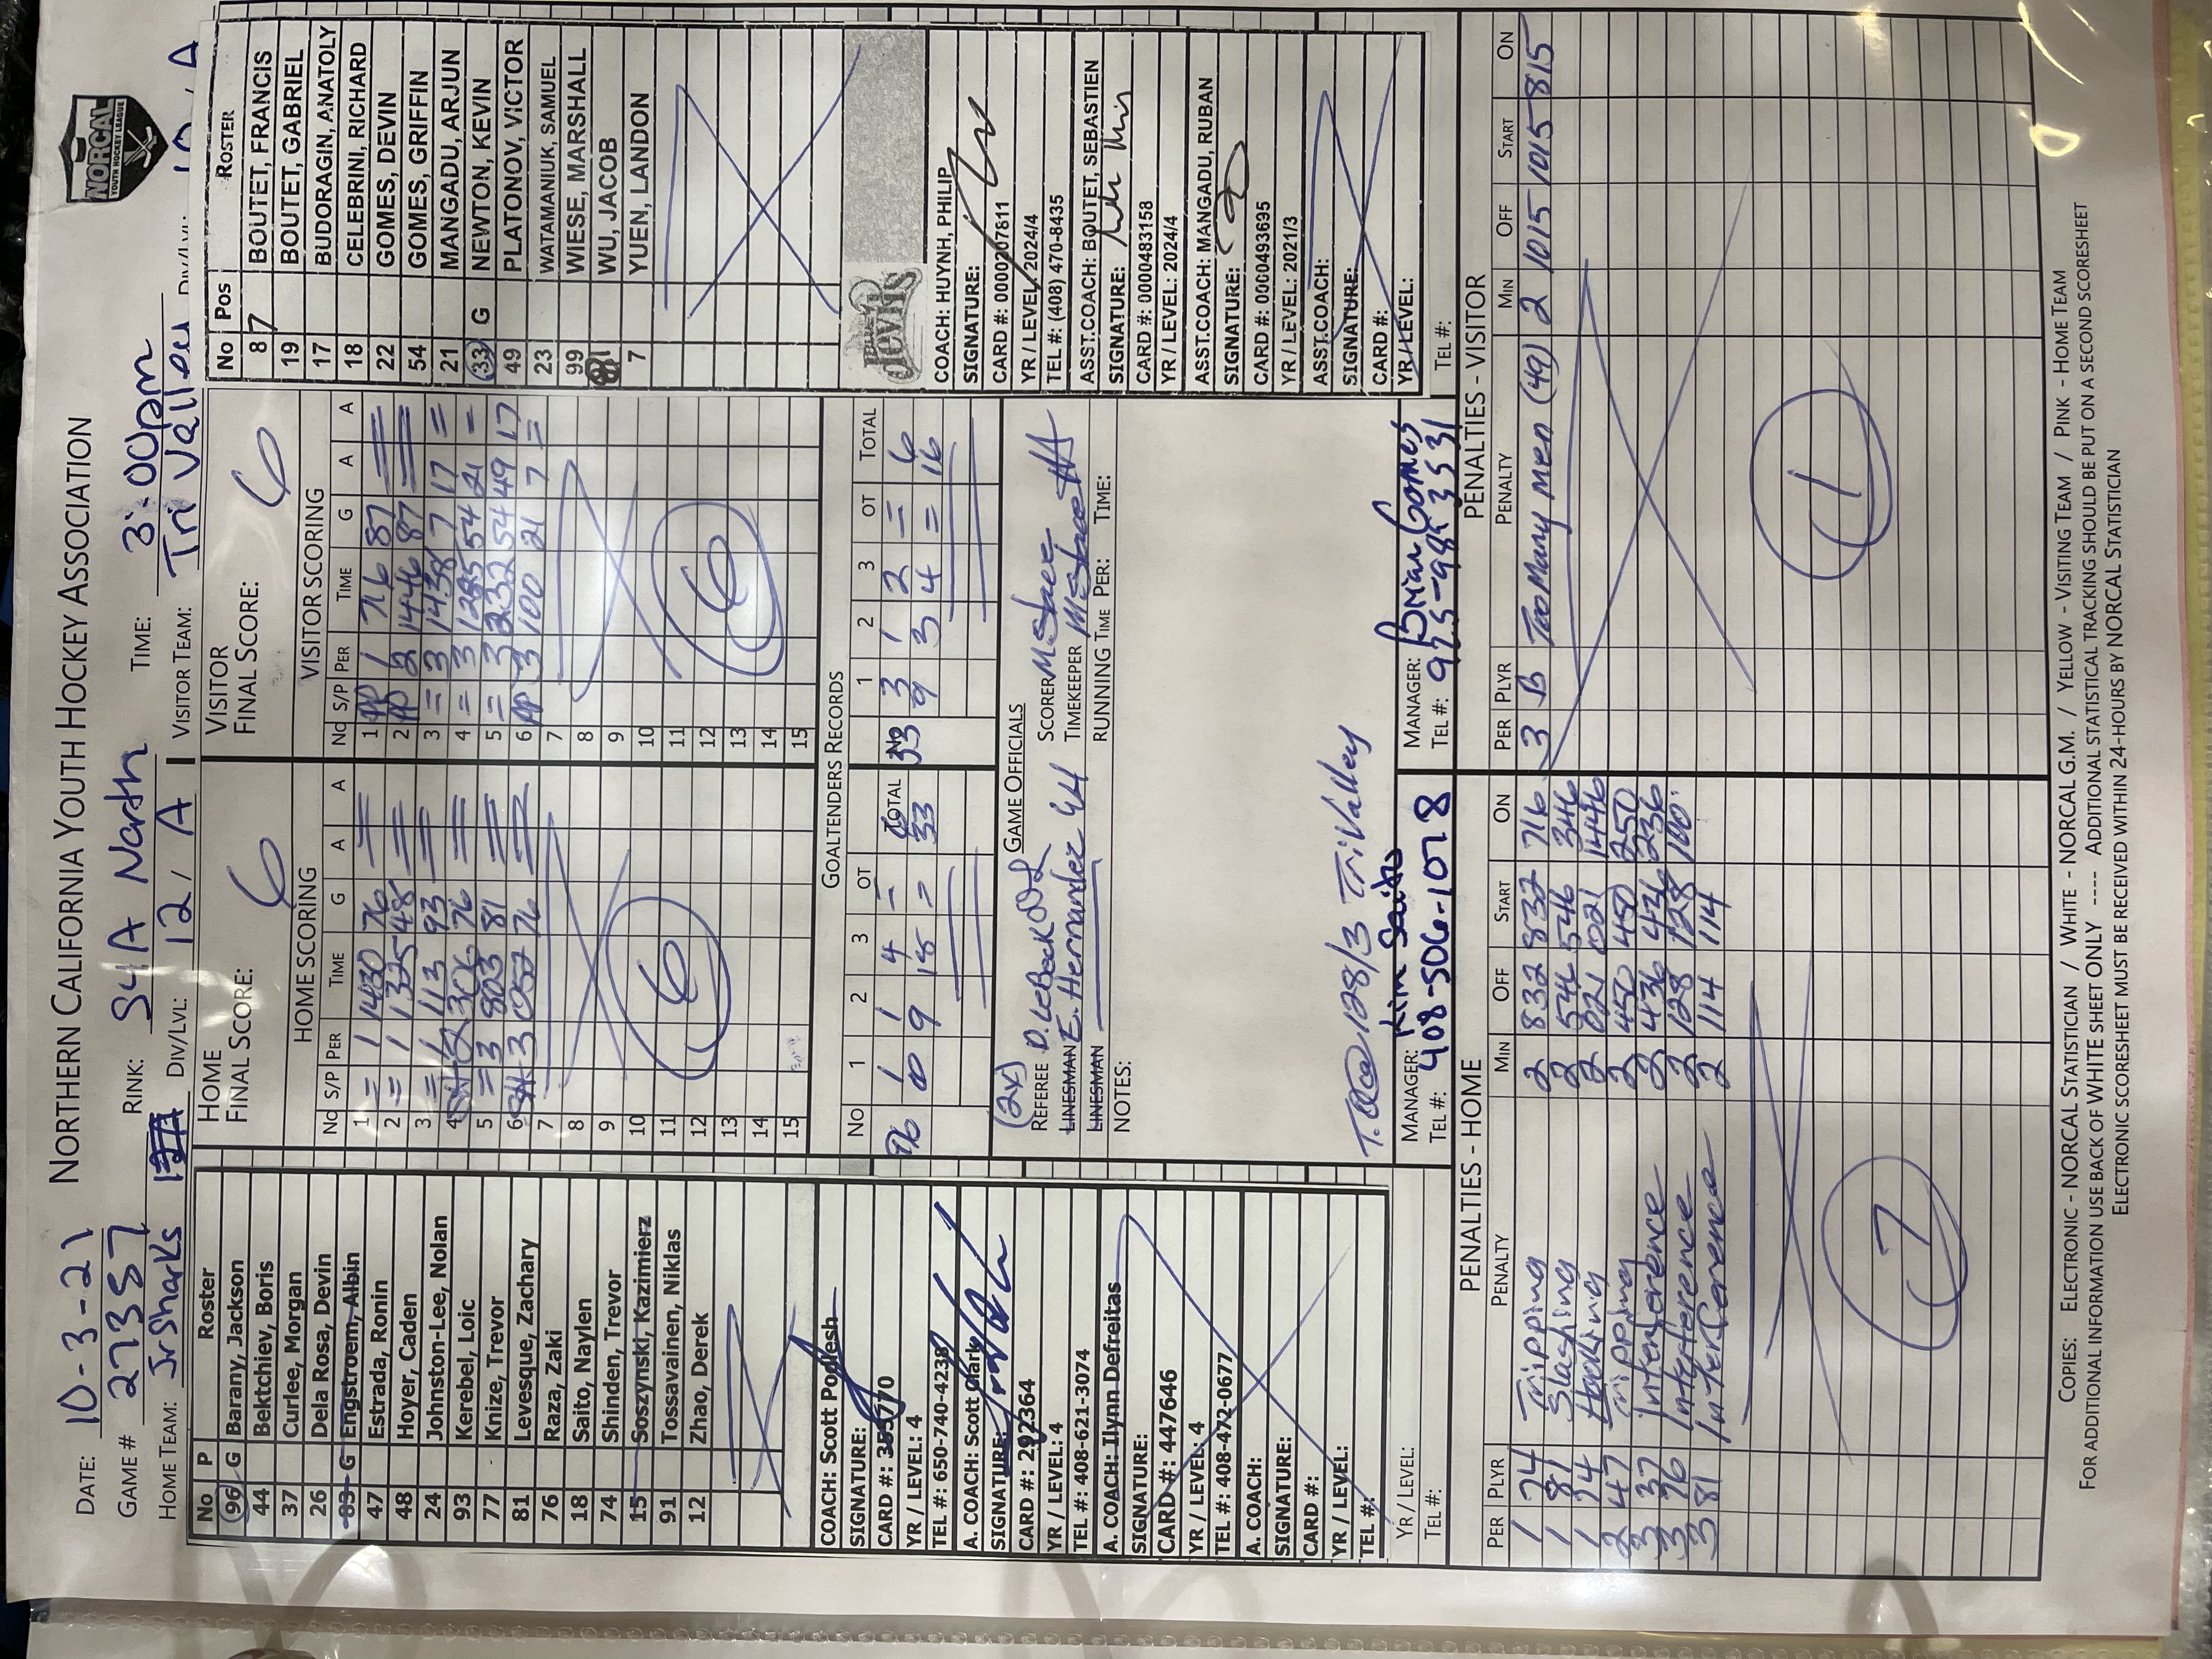 NORTHERN CALIFORNIA YOUTH HOCKEY ASSOCIATION
NORCAL
YOUTH HOCKEY LEAGUE
DATE: 10-3-21
GAME # 27357 RINK: S4A North TIME: 3:00pm
HOME TEAM: Jr Sharks DIV/LVL: 12 / A VISITOR TEAM: Tri Valley DIV/LVL: / A
No P Roster
96 G Barany, Jackson
44 Bektchiev, Boris
37 Curlee, Morgan
26 Dela Rosa, Devin
83 G Engstroem, Albin
47 Estrada, Ronin
48 Hoyer, Caden
24 Johnston-Lee, Nolan
93 Kerebel, Loic
77 Knize, Trevor
81 Levesque, Zachary
76 Raza, Zaki
18 Saito, Naylen
74 Shinden, Trevor
15 Soszynski, Kazimierz
91 Tossavainen, Niklas
12 Zhao, Derek
COACH: Scott
SIGNATURE:
CARD #:
YR / LEVEL: 4
TEL #: 650-740-4238
A. COACH: Scott Clark
SIGNATURE:
CARD #: 292364
YR / LEVEL: 4
TEL #: 408-621-3074
A. COACH: Ilynn Defreitas
SIGNATURE:
CARD #: 447646
YR / LEVEL: 4
TEL #: 408-472-0677
A. COACH:
SIGNATURE:
CARD #:
YR / LEVEL:
TEL #:
YR / LEVEL:
TEL #:
HOME
FINAL SCORE: 6
HOME SCORING
No S/P PER TIME G A A
1 = 1 1430 76
2 = 1 1325 48
3 = 1 113 93
4 SH 2 306 76
5 = 3 803 81
6 SH 3 76
7
8
9
10
11
12
13
14
15
6
VISITOR
FINAL SCORE: 6
VISITOR SCORING
No S/P PER TIME G A A
1 PP 1 716 87
2 PP 2 1446 87
3 = 3 1438 7 17 =
4 = 3 54 21 =
5 = 3 232 54 49 17
6 PP 3 100 21 7 =
7
8
9
10
11
12
13
14
15
6
GOALTENDERS RECORDS
No 1 2 3 OT TOTAL No 1 2 3 OT TOTAL
96 1 1 4 = 6 33 3 1 2 = 6
9 18 = 33 9 3 4 = 16
GAME OFFICIALS
(2x)
REFEREE SCORER
LINESMAN E. Hernandez TIMEKEEPER
LINESMAN RUNNING TIME PER: TIME:
NOTES:
T.O. @ 128/3 Tri Valley
MANAGER: Kim Saito
TEL #: 408-506-1078
MANAGER: Brian Gomes
TEL #: 925-
No Pos ROSTER
87 BOUTET, FRANCIS
19 BOUTET, GABRIEL
17 BUDORAGIN, ANATOLY
18 CELEBRINI, RICHARD
22 GOMES, DEVIN
54 GOMES, GRIFFIN
21 MANGADU, ARJUN
33 G NEWTON, KEVIN
49 PLATONOV, VICTOR
23 WATAMANIUK, SAMUEL
99 WIESE, MARSHALL
81 WU, JACOB
7 YUEN, LANDON
COACH: HUYNH, PHILIP
SIGNATURE:
CARD #: 0000207611
YR / LEVEL: 2024/4
TEL #: (408) 470-8435
ASST.COACH: BOUTET, SEBASTIEN
SIGNATURE:
CARD #: 0000483158
YR / LEVEL: 2024/4
ASST.COACH: MANGADU, RUBAN
SIGNATURE:
CARD #: 0000493695
YR / LEVEL: 2021/3
ASST.COACH:
SIGNATURE:
CARD #:
YR / LEVEL:
TEL #:
PENALTIES - HOME
PER PLYR PENALTY MIN OFF START ON
1 74 Tripping 2 832 832 716
1 81 Slashing 2 546 546 346
1 24 Hooking 2 021 021 1446
2 47 Tripping 2 450 450 250
3 37 Interference 2 436 436 236
3 76 Interference 2 128 128 100
3 81 Interference 2 114 114
7
PENALTIES - VISITOR
PER PLYR PENALTY MIN OFF START ON
3 B Too Many Men (49) 2 1015 1015 815
1
COPIES: ELECTRONIC - NORCAL STATISTICIAN / WHITE - NORCAL G.M. / YELLOW - VISITING TEAM / PINK - HOME TEAM
FOR ADDITIONAL INFORMATION USE BACK OF WHITE SHEET ONLY ---- ADDITIONAL STATISTICAL TRACKING SHOULD BE PUT ON A SECOND SCORESHEET
ELECTRONIC SCORESHEET MUST BE RECEIVED WITHIN 24-HOURS BY NORCAL STATISTICIAN